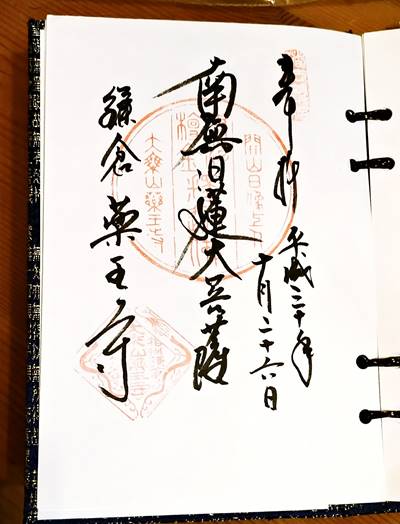 奉拝
平成三十年
十月二十六日
南無日蓮大菩薩
鎌倉 薬王寺
大藥山藥王寺